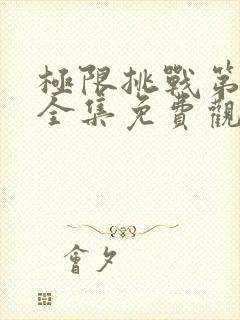 極限挑戰第
全集免費觀
會夕